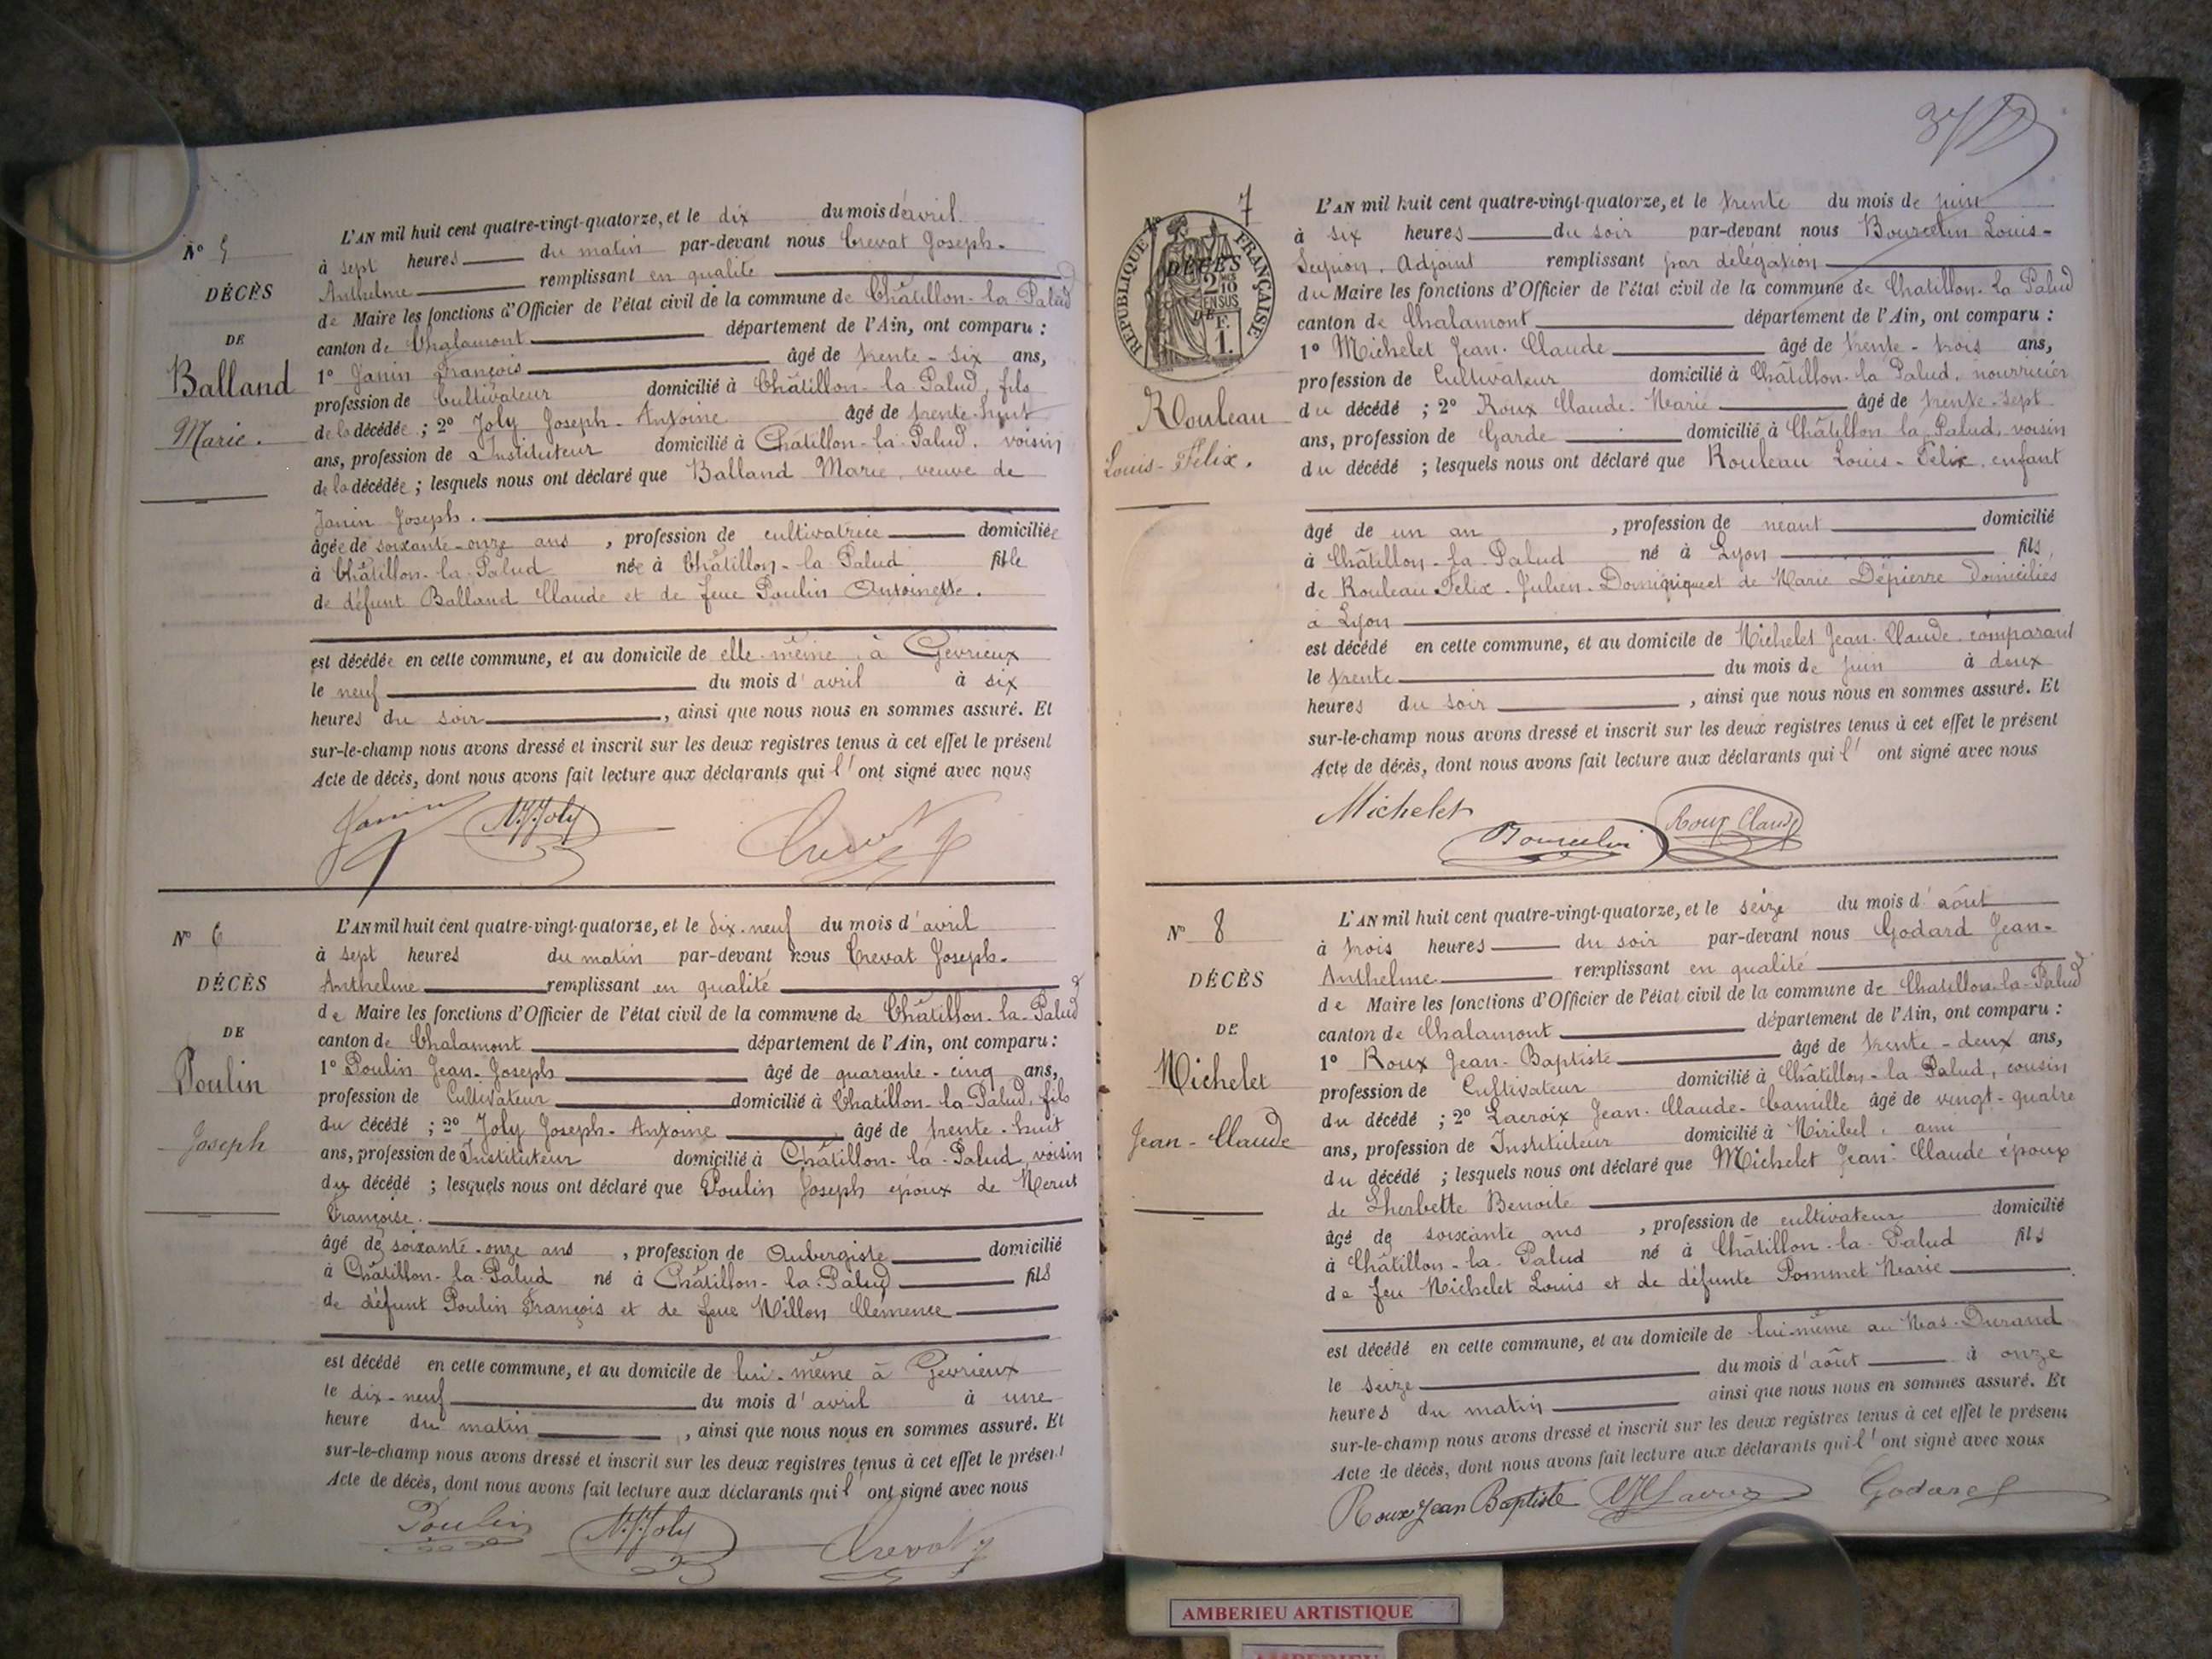 N° 5
DÉCÈS
DE
Balland
Marie.
L'AN mil huit cent quatre-vingt-quatorze, et le dix du mois d'avril
à sept heures du matin par-devant nous Crevat Joseph-
Anthelme remplissant en qualité
de Maire les fonctions d'Officier de l'état civil de la commune de Châtillon-la-Palud
canton de Chalamont département de l'Ain, ont comparu :
1° Janin François âgé de trente-six ans,
profession de Cultivateur domicilié à Châtillon-la-Palud, fils
de la décédée ; 2° Joly Joseph-Antoine âgé de trente-huit
ans, profession de Instituteur domicilié à Châtillon-la-Palud, voisin
de la décédée ; lesquels nous ont déclaré que Balland Marie, veuve de
Janin Joseph.
âgée de soixante-onze ans , profession de cultivatrice domiciliée
à Châtillon-la-Palud née à Châtillon-la-Palud fille
de défunt Balland Claude et de feue Poulin Antoinette.
est décédée en cette commune, et au domicile de elle-même à Gévrieux
le neuf du mois d'avril à six
heures du soir , ainsi que nous nous en sommes assuré. Et
sur-le-champ nous avons dressé et inscrit sur les deux registres tenus à cet effet le présent
Acte de décès, dont nous avons fait lecture aux déclarants qui l'ont signé avec nous
Janin Joly Crevat
N° 6
DÉCÈS
DE
Poulin
Joseph
L'AN mil huit cent quatre-vingt-quatorze, et le dix-neuf du mois d'avril
à sept heures du matin par-devant nous Crevat Joseph-
Anthelme remplissant en qualité
de Maire les fonctions d'Officier de l'état civil de la commune de Châtillon-la-Palud
canton de Chalamont département de l'Ain, ont comparu :
1° Poulin Jean-Joseph âgé de quarante-cinq ans,
profession de Cultivateur domicilié à Châtillon-la-Palud, fils
du décédé ; 2° Joly Joseph-Antoine âgé de trente-huit
ans, profession de Instituteur domicilié à Châtillon-la-Palud, voisin
du décédé ; lesquels nous ont déclaré que Poulin Joseph époux de Merut
Françoise.
âgé de soixante-onze ans , profession de Aubergiste domicilié
à Châtillon-la-Palud né à Châtillon-la-Palud fils
de défunt Poulin François et de feue Millon Clémence
est décédé en cette commune, et au domicile de lui-même à Gévrieux
le dix-neuf du mois d'avril à une
heure du matin , ainsi que nous nous en sommes assuré. Et
sur-le-champ nous avons dressé et inscrit sur les deux registres tenus à cet effet le présent
Acte de décès, dont nous avons fait lecture aux déclarants qui l'ont signé avec nous
Poulin Joly Crevat
37
N° 7
RÉPUBLIQUE FRANÇAISE
DÉCÈS
2/10
EN SUS
DE
F.
1.
Rouleau
Louis-Félix.
L'AN mil huit cent quatre-vingt-quatorze, et le trente du mois de juin
à six heures du soir par-devant nous Bourcelin Louis-
Adjoint remplissant par délégation
du Maire les fonctions d'Officier de l'état civil de la commune de Chatillon-la-Palud
canton de Chalamont département de l'Ain, ont comparu :
1° Michelet Jean-Claude âgé de trente-trois ans,
profession de Cultivateur domicilié à Châtillon-la-Palud, nourricier
du décédé ; 2° Roux Claude-Marie âgé de trente-sept
ans, profession de Garde domicilié à Châtillon-la-Palud, voisin
du décédé ; lesquels nous ont déclaré que Rouleau Louis-Félix, enfant
âgé de un an , profession de néant domicilié
à Châtillon-la-Palud né à Lyon fils
de Rouleau Félix-Julien-Dominique et de Marie Dépierre domiciliés
à Lyon
est décédé en cette commune, et au domicile de Michelet Jean-Claude, comparant
le trente du mois de juin à deux
heures du soir , ainsi que nous nous en sommes assuré. Et
sur-le-champ nous avons dressé et inscrit sur les deux registres tenus à cet effet le présent
Acte de décès, dont nous avons fait lecture aux déclarants qui l' ont signé avec nous
Michelet Bourcelin Roux Claude
N° 8
DÉCÈS
DE
Michelet
Jean-Claude
L'AN mil huit cent quatre-vingt-quatorze, et le seize du mois d'août
à trois heures du soir par-devant nous Godard Jean-
Anthelme remplissant en qualité
de Maire les fonctions d'Officier de l'état civil de la commune de Chatillon-la-Palud
canton de Chalamont département de l'Ain, ont comparu :
1° Roux Jean-Baptiste âgé de trente-deux ans,
profession de Cultivateur domicilié à Châtillon-la-Palud, cousin
du décédé ; 2° Lacroix Jean-Claude-Camille âgé de vingt-quatre
ans, profession de Instituteur domicilié à Miribel, ami
du décédé ; lesquels nous ont déclaré que Michelet Jean-Claude époux
de Lherbette Benoite
âgé de soixante ans , profession de cultivateur domicilié
à Châtillon-la-Palud né à Châtillon-la-Palud fils
de feu Michelet Louis et de défunte Pommet Marie
est décédé en cette commune, et au domicile de lui-même au Mas-Durand
le seize du mois d'août à onze
heures du matin ainsi que nous nous en sommes assuré. Et
sur-le-champ nous avons dressé et inscrit sur les deux registres tenus à cet effet le présent
Acte de décès, dont nous avons fait lecture aux déclarants qui l'ont signé avec nous
Roux Jean Baptiste Lacroix Godard
AMBERIEU ARTISTIQUE
AMBERIEU